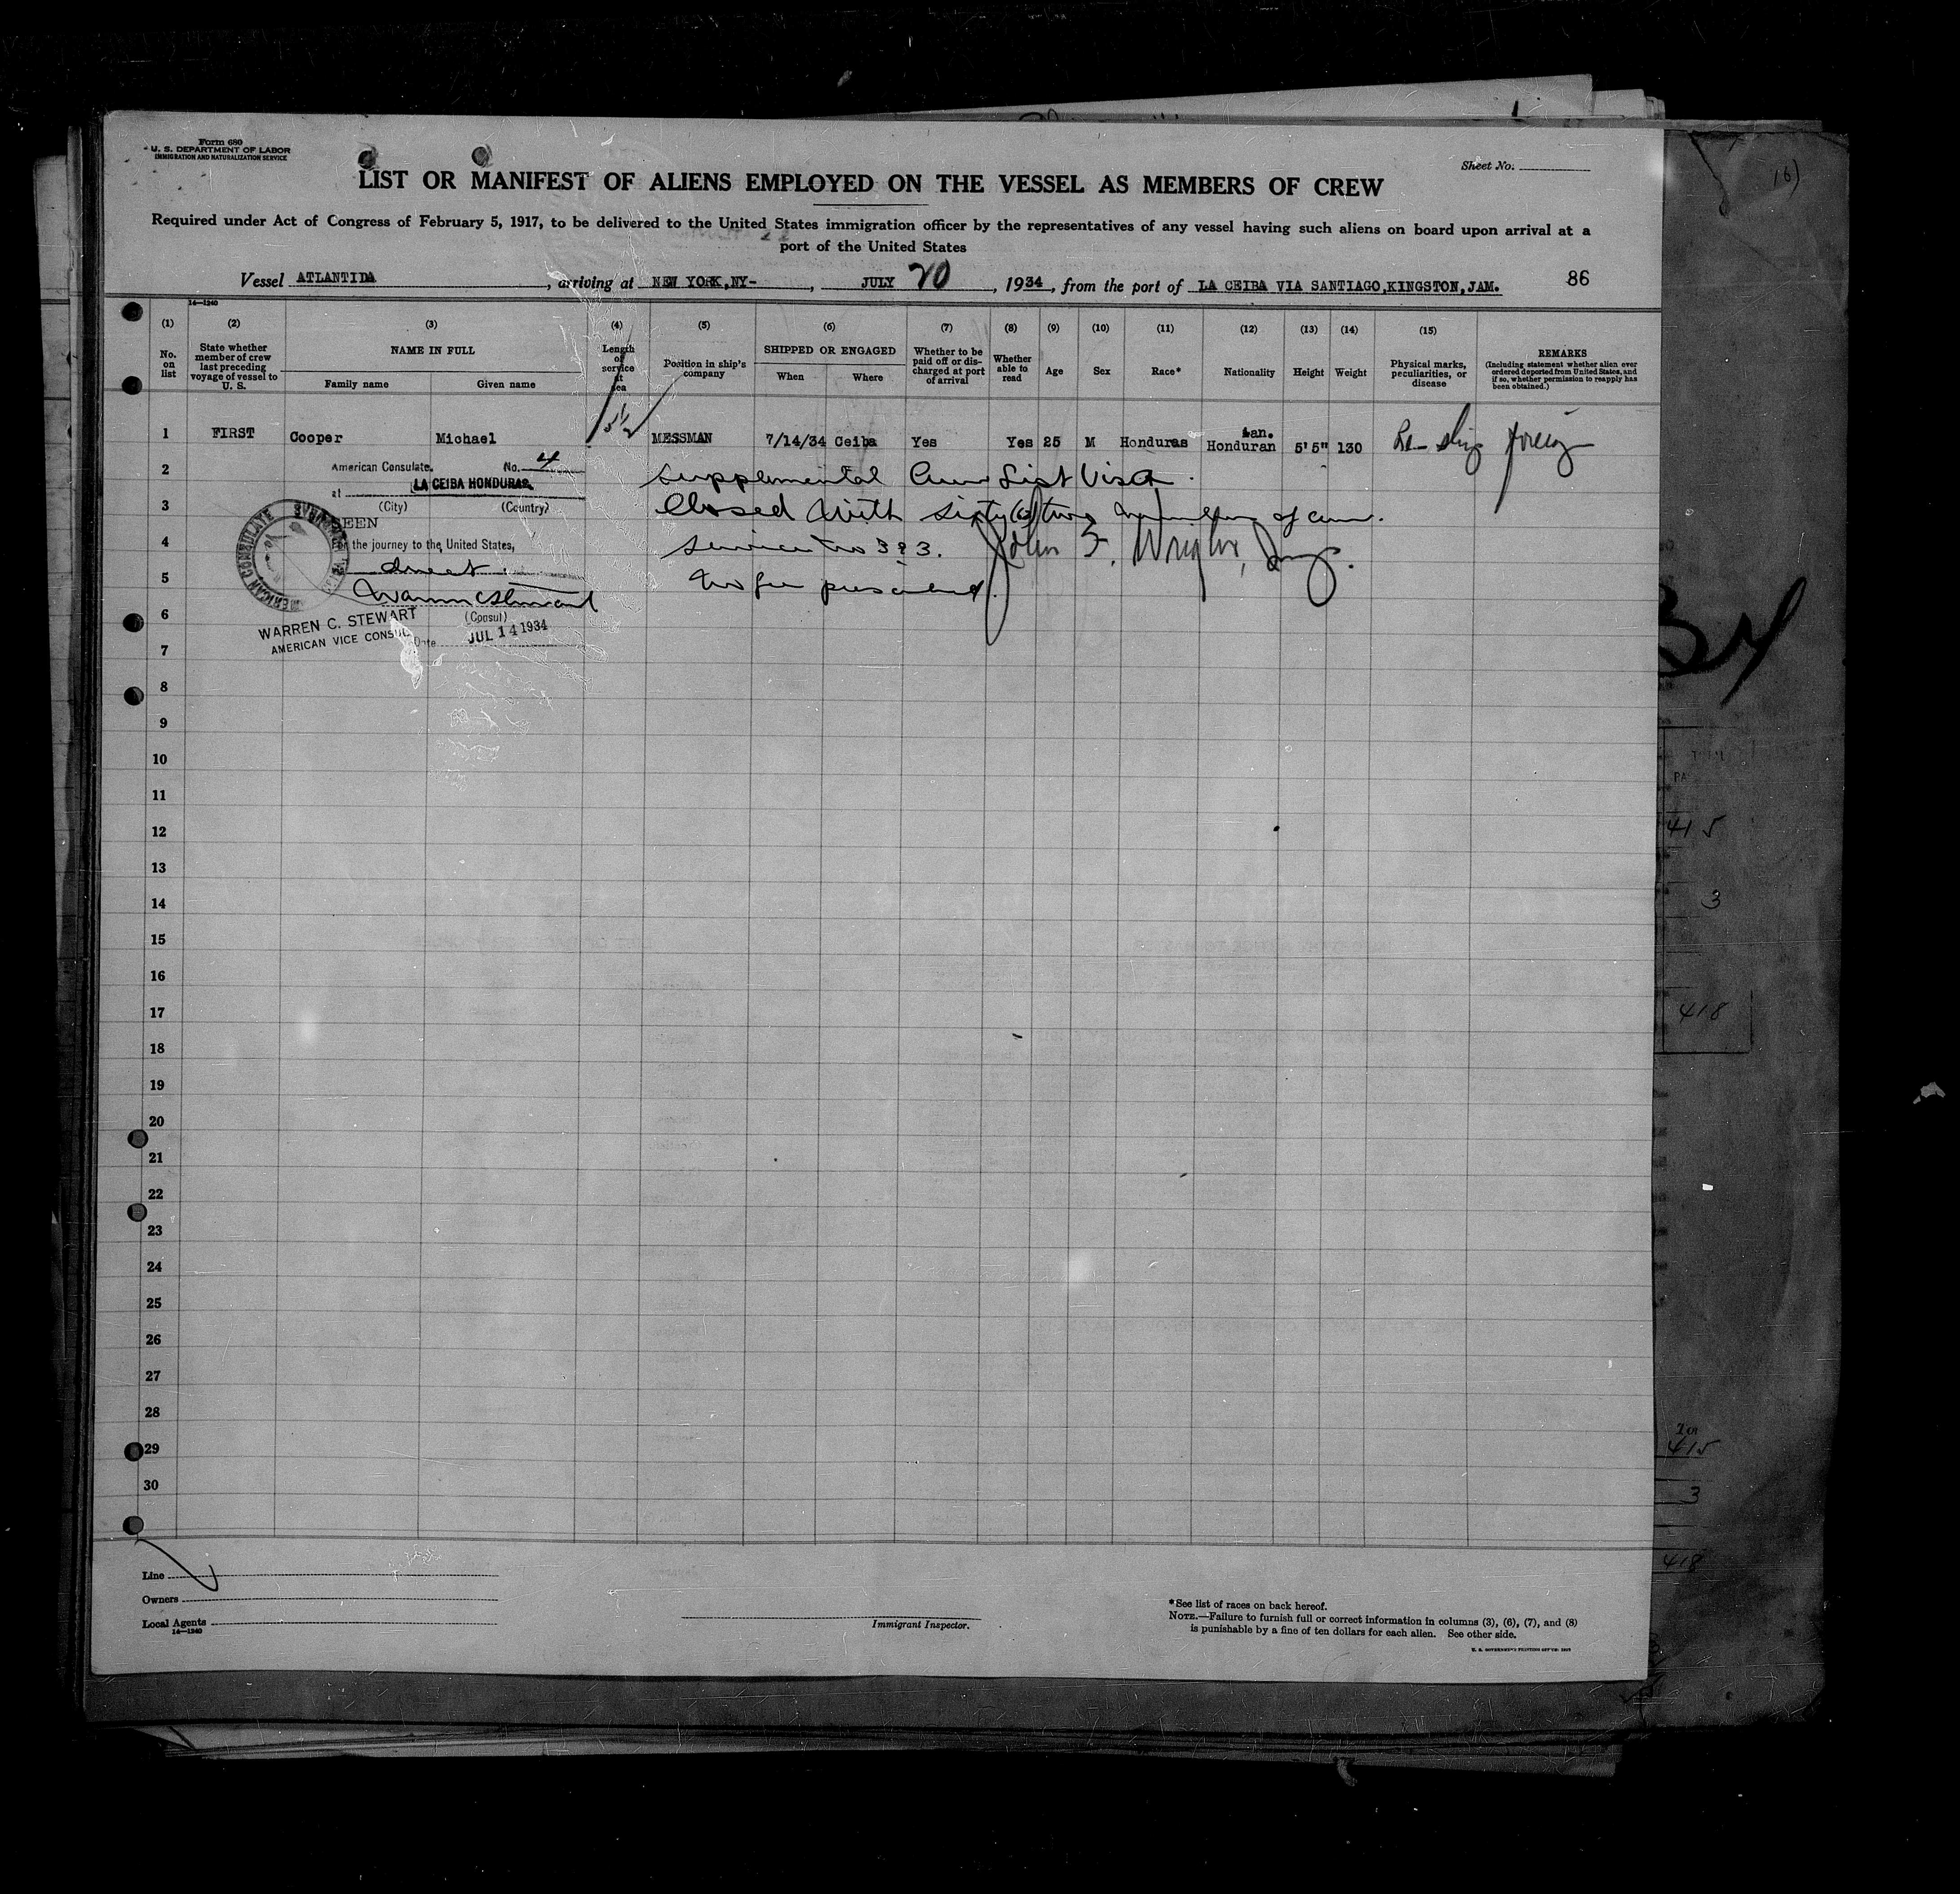 Form 680
U. S. DEPARTMENT OF LABOR
IMMIGRATION AND NATURALIZATION SERVICE
Sheet No.
LIST OR MANIFEST OF ALIENS EMPLOYED ON THE VESSEL AS MEMBERS OF CREW
Required under Act of Congress of February 5, 1917, to be delivered to the United States immigration officer by the representatives of any vessel having such aliens on board upon arrival at a
port of the United States
Vessel ATLANTIDA, arriving at NEW YORK,NY-, JULY 20, 1934, from the port of LA CEIBA VIA SANTIAGO,KINGSTON,JAM.
86
14—1240
(1) (2) (3) (4) (5) (6) (7) (8) (9) (10) (11) (12) (13) (14) (15)
No. on list
State whether member of crew last preceding voyage of vessel to U. S.
NAME IN FULL
Family name Given name
Length of service at sea
Position in ship's company
SHIPPED OR ENGAGED
When Where
Whether to be paid off or discharged at port of arrival
Whether able to read
Age
Sex
Race*
Nationality
Height
Weight
Physical marks, peculiarities, or disease
REMARKS
(Including statement whether alien ever ordered deported from United States, and if so, whether permission to reapply has been obtained.)
1 FIRST Cooper Michael MESSMAN 7/14/34 Ceiba Yes Yes 25 M Honduras Honduran 5'5" 130 Re-ship foreign
2 American Consulate. No. 4
at LA CEIBA HONDURAS
Supplemental Crew List Visa.
3 (City) (Country)
Closed with sixty two members of crew.
SEEN
4 the journey to the United States,
Service No 393. John F. Wright, Ins.
direct
5 No fee prescribed.
Warren C Stewart
6 (Consul)
WARREN C. STEWART
AMERICAN VICE CONSUL
Date JUL 14 1934
AMERICAN CONSULATE
7
8
9
10
11
12
13
14
15
16
17
18
19
20
21
22
23
24
25
26
27
28
29
30
Line
Owners
Local Agents
14—1240
Immigrant Inspector.
*See list of races on back hereof.
NOTE.—Failure to furnish full or correct information in columns (3), (6), (7), and (8)
is punishable by a fine of ten dollars for each alien. See other side.
415
3
418
415
3
418